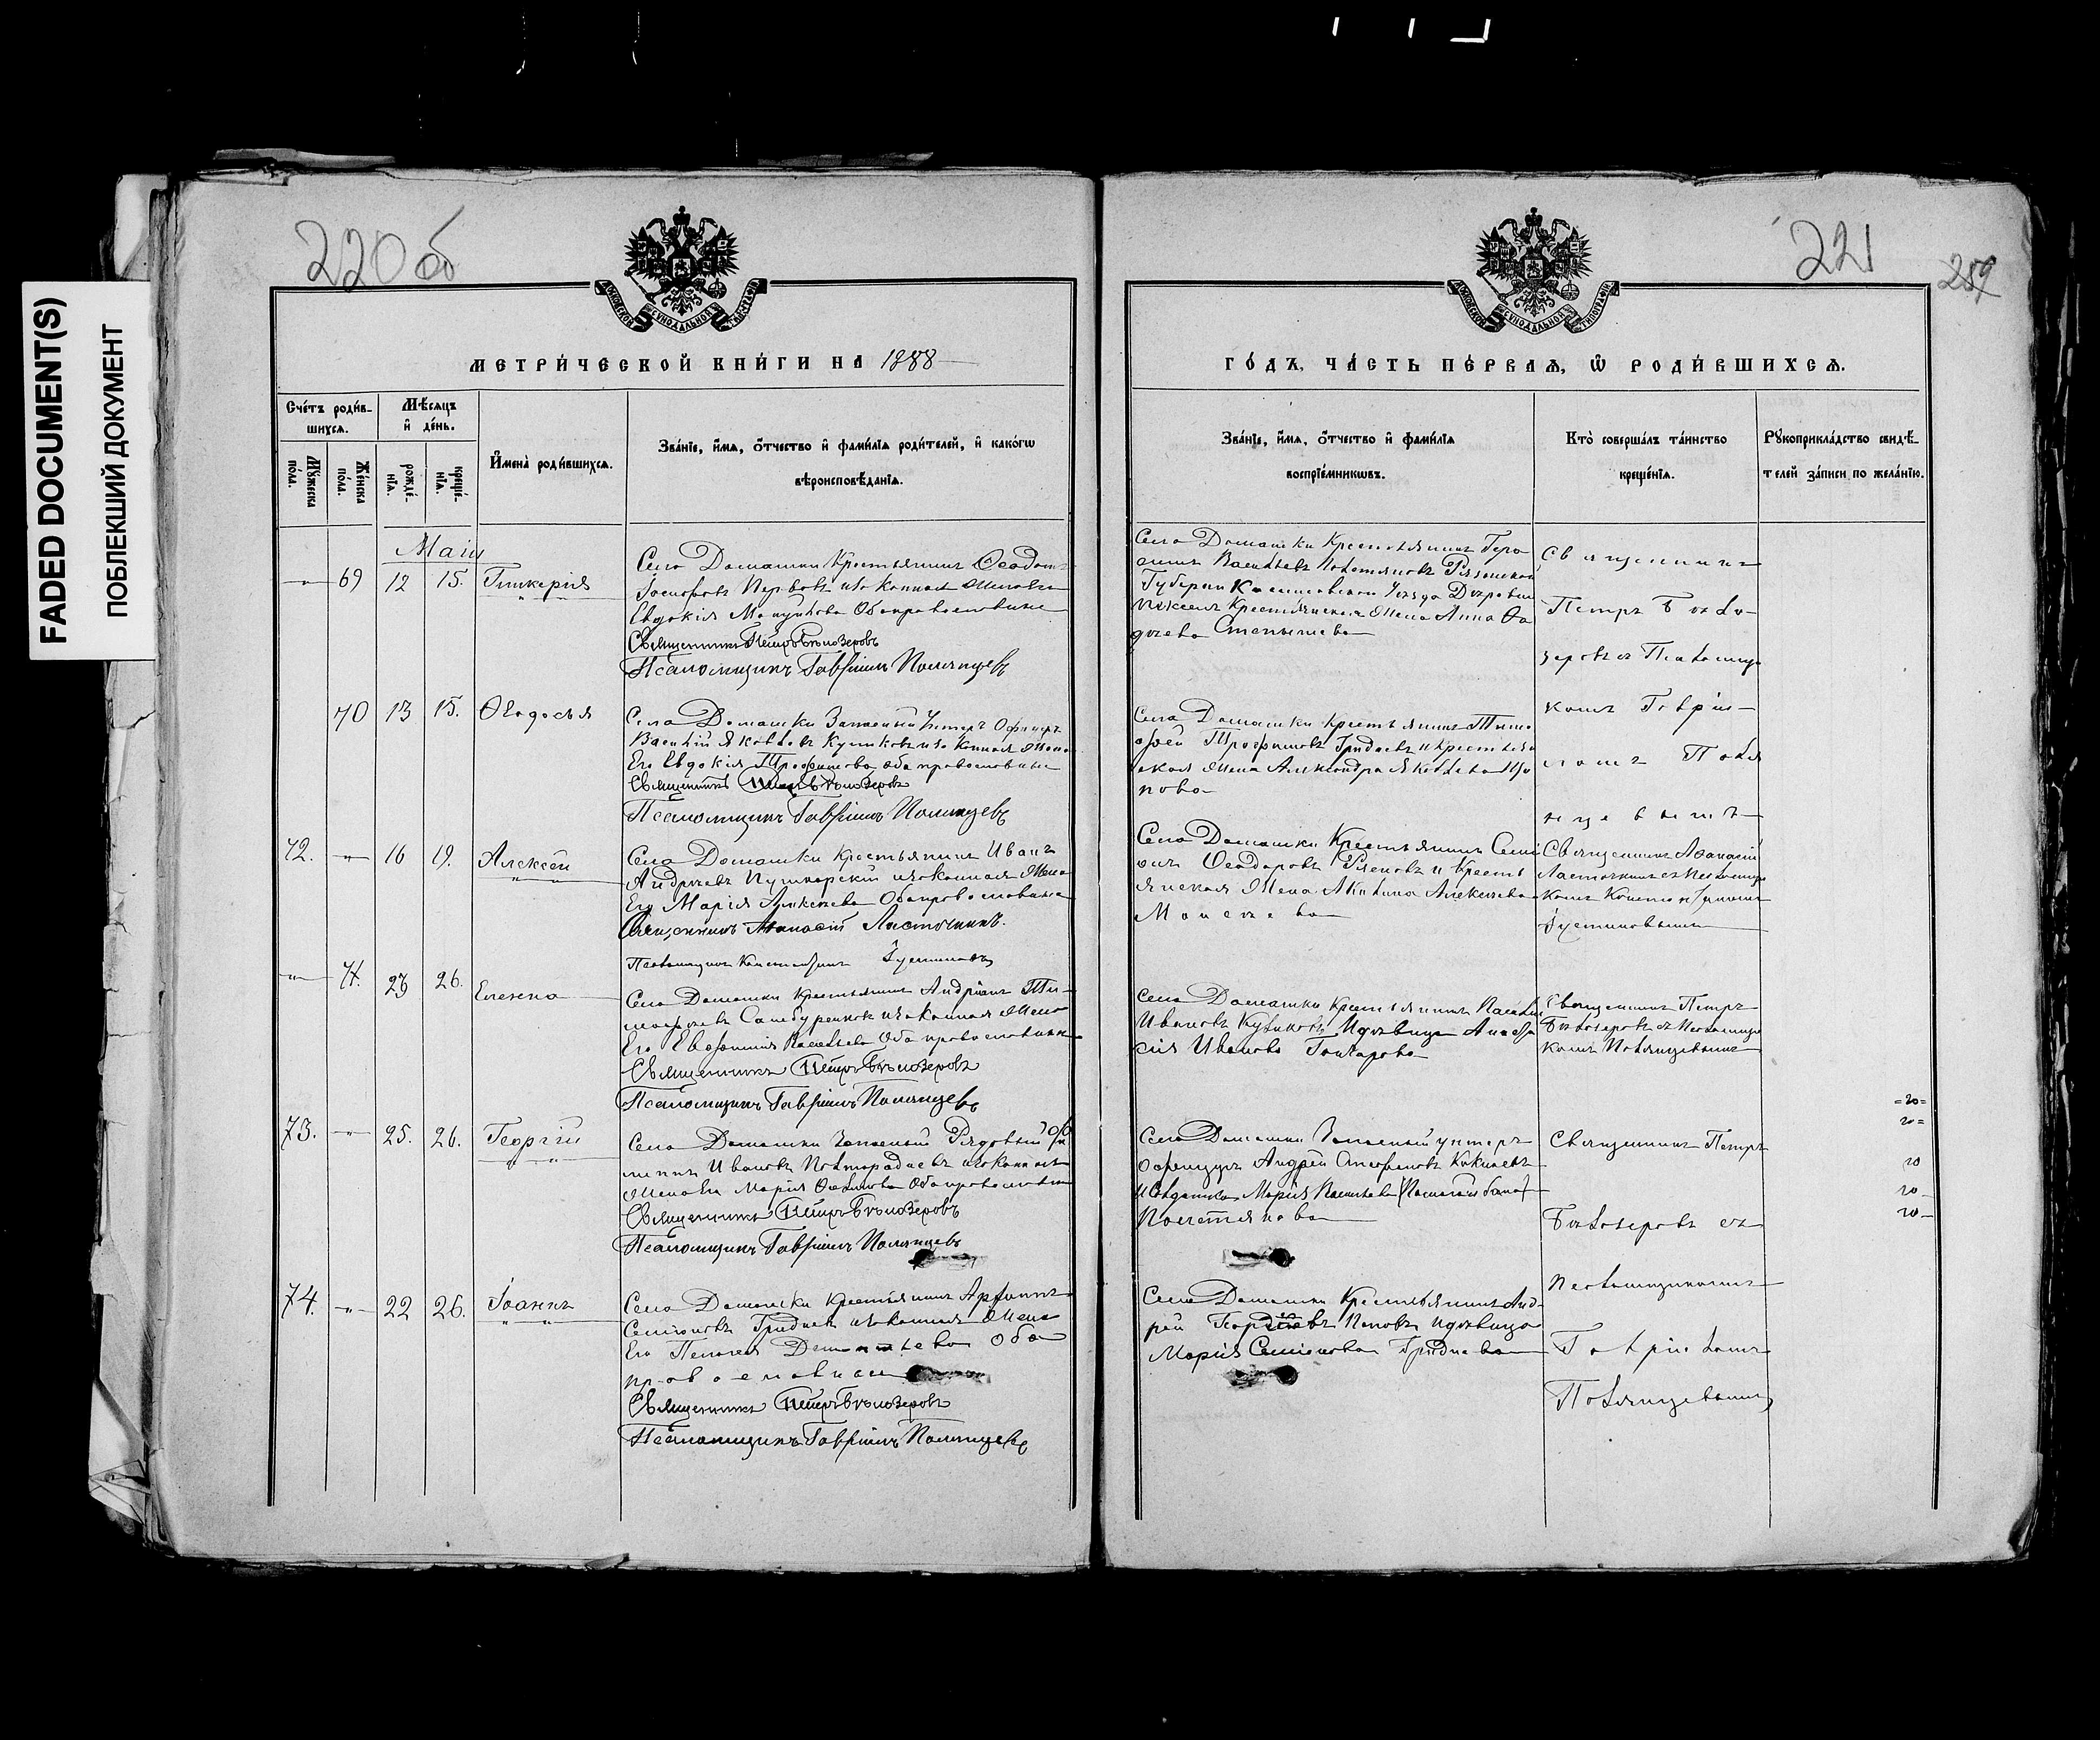 FADED DOCUMENT(S)
ПОБЛЕКШИЙ ДОКУМЕНТ
220 об
МОСКОВСКОЙ СѴНОДАЛЬНОЙ ТИПОГРАФІИ
МЕТРИ́ЧЕСКОЙ КНИ́ГИ НА 1888
Сче́тъ роди́в-
шихсѧ.
Мѣ́сѧцъ
и҆ де́нь.
Мꙋ́жеска
по́ла.
Же́нска
по́ла.
рожде́-
нїѧ.
креще́-
нїѧ.
И҆мена̀ роди́вшихсѧ.
Зва́нїе, и҆́мѧ, ѻ҆́тчество и҆ фами́лїѧ роди́телей, и҆ како́гѡ
вѣроисповѣ́данїѧ.
Маій
69 12 15. Гликерія
Села Домашки Крестьянинъ Ѳеодотъ
Евдокія Обаправославные
Священникъ Петръ Бѣлозеровъ
Псаломщикъ Гавріилъ Полянцевъ
70 13 15. Ѳеодосья
Села Домашки Запасный Унтеръ Офицеръ
Василій Яковлевъ Куликовъ изаконная жена
Его Евдокія Трофимова оба православные
Священникъ Петръ Бѣлозеровъ
Псаломщикъ Гавріилъ Полянцевъ
72. 16 19. Алексѣй
Села Домашки Крестьянинъ Иванъ
Андреевъ Пушкарскій изаконная Жена
Его Марія Алексеева Обаправославные
Священникъ Аѳанасій Ласточкинъ.
Псаломщикъ Константинъ Іустиновъ
71. 23 26. Елена
Села Домашки Крестьянинъ Андріанъ Ти-
мофеевъ изаконная Жена
Его Евфимія Васильева Оба православные
Священникъ Петръ Бѣлозеровъ
Псаломщикъ Гавріилъ Полянцевъ
73. 25. 26. Георгій
Села Домашки Запасный Рядовый
Ивановъ изаконная
Жена Его Марія Обаправославные
Священникъ Петръ Бѣлозеровъ
Псаломщикъ Гавріилъ Полянцевъ
74. 22 26. Іоаннъ
Села Домашки Крестьянинъ
Семіоновъ Гридневъ изаконная Жена
Его Пелагея Дементьева Оба
православные
Священникъ Петръ Бѣлозеровъ
Псаломщикъ Гавріилъ Полянцевъ
221
259
МОСКОВСКОЙ СѴНОДАЛЬНОЙ ТИПОГРАФІИ
ГО́ДЪ, ЧА́СТЬ ПЕ́РВАѦ, Ѡ҆ РОДИ́ВШИХСѦ.
Зва́нїе, и҆́мѧ, ѻ҆́тчество и҆ фами́лїѧ
воспрїе́мникѡвъ.
Кто̀ соверша́лъ та́инство
креще́нїѧ.
Рꙋкоприкла́дство свидѣ́-
телей за́писи по жела́нїю.
Села Домашки Крестьянинъ Гера-
симъ Васильевъ Рязанской
Губерніи Касимовской Уезда
Крестьянская Жена Анна
Степанова
Священникъ
Петръ Бѣло-
зеровъ съ Псаломщи-
комъ Гаврі-
иломъ Поля
нцевымъ
Села Домашки Крестьянинъ Тимо
фей Трофимовъ Гридневъ и Крестьян
ская Жена Александра Яковлева По
пова
Села Домашки Крестьянинъ Семі
онъ Ѳеодоровъ и Кресть
янская Жена Акилина Алексеева
Моисеева
Священникъ Аѳанасій
Ласточкинъ съ Псаломщи
комъ Константиномъ
Іустиновымъ
Села Домашки Крестьянинъ Василій
Ивановъ Куликовъ Идѣвица Анаста
сія Иванова Гончарова
Священникъ Петръ
Бѣлозеровъ съ Псаломщи
комъ Полянцевымъ
=20=
20=
20
20
20
Села Домашки Запасный унтеръ
Офицеръ Андрей Стефановъ
Марія Васильева
Священникъ Петръ
Бѣлозеровъ съ
Псаломщикомъ
Гавріиломъ
Полянцевымъ
Села Домашки Крестьянинъ Анд-
рей Георгіевъ Поповъ Идѣвица
Марія Семіонова Гриднева